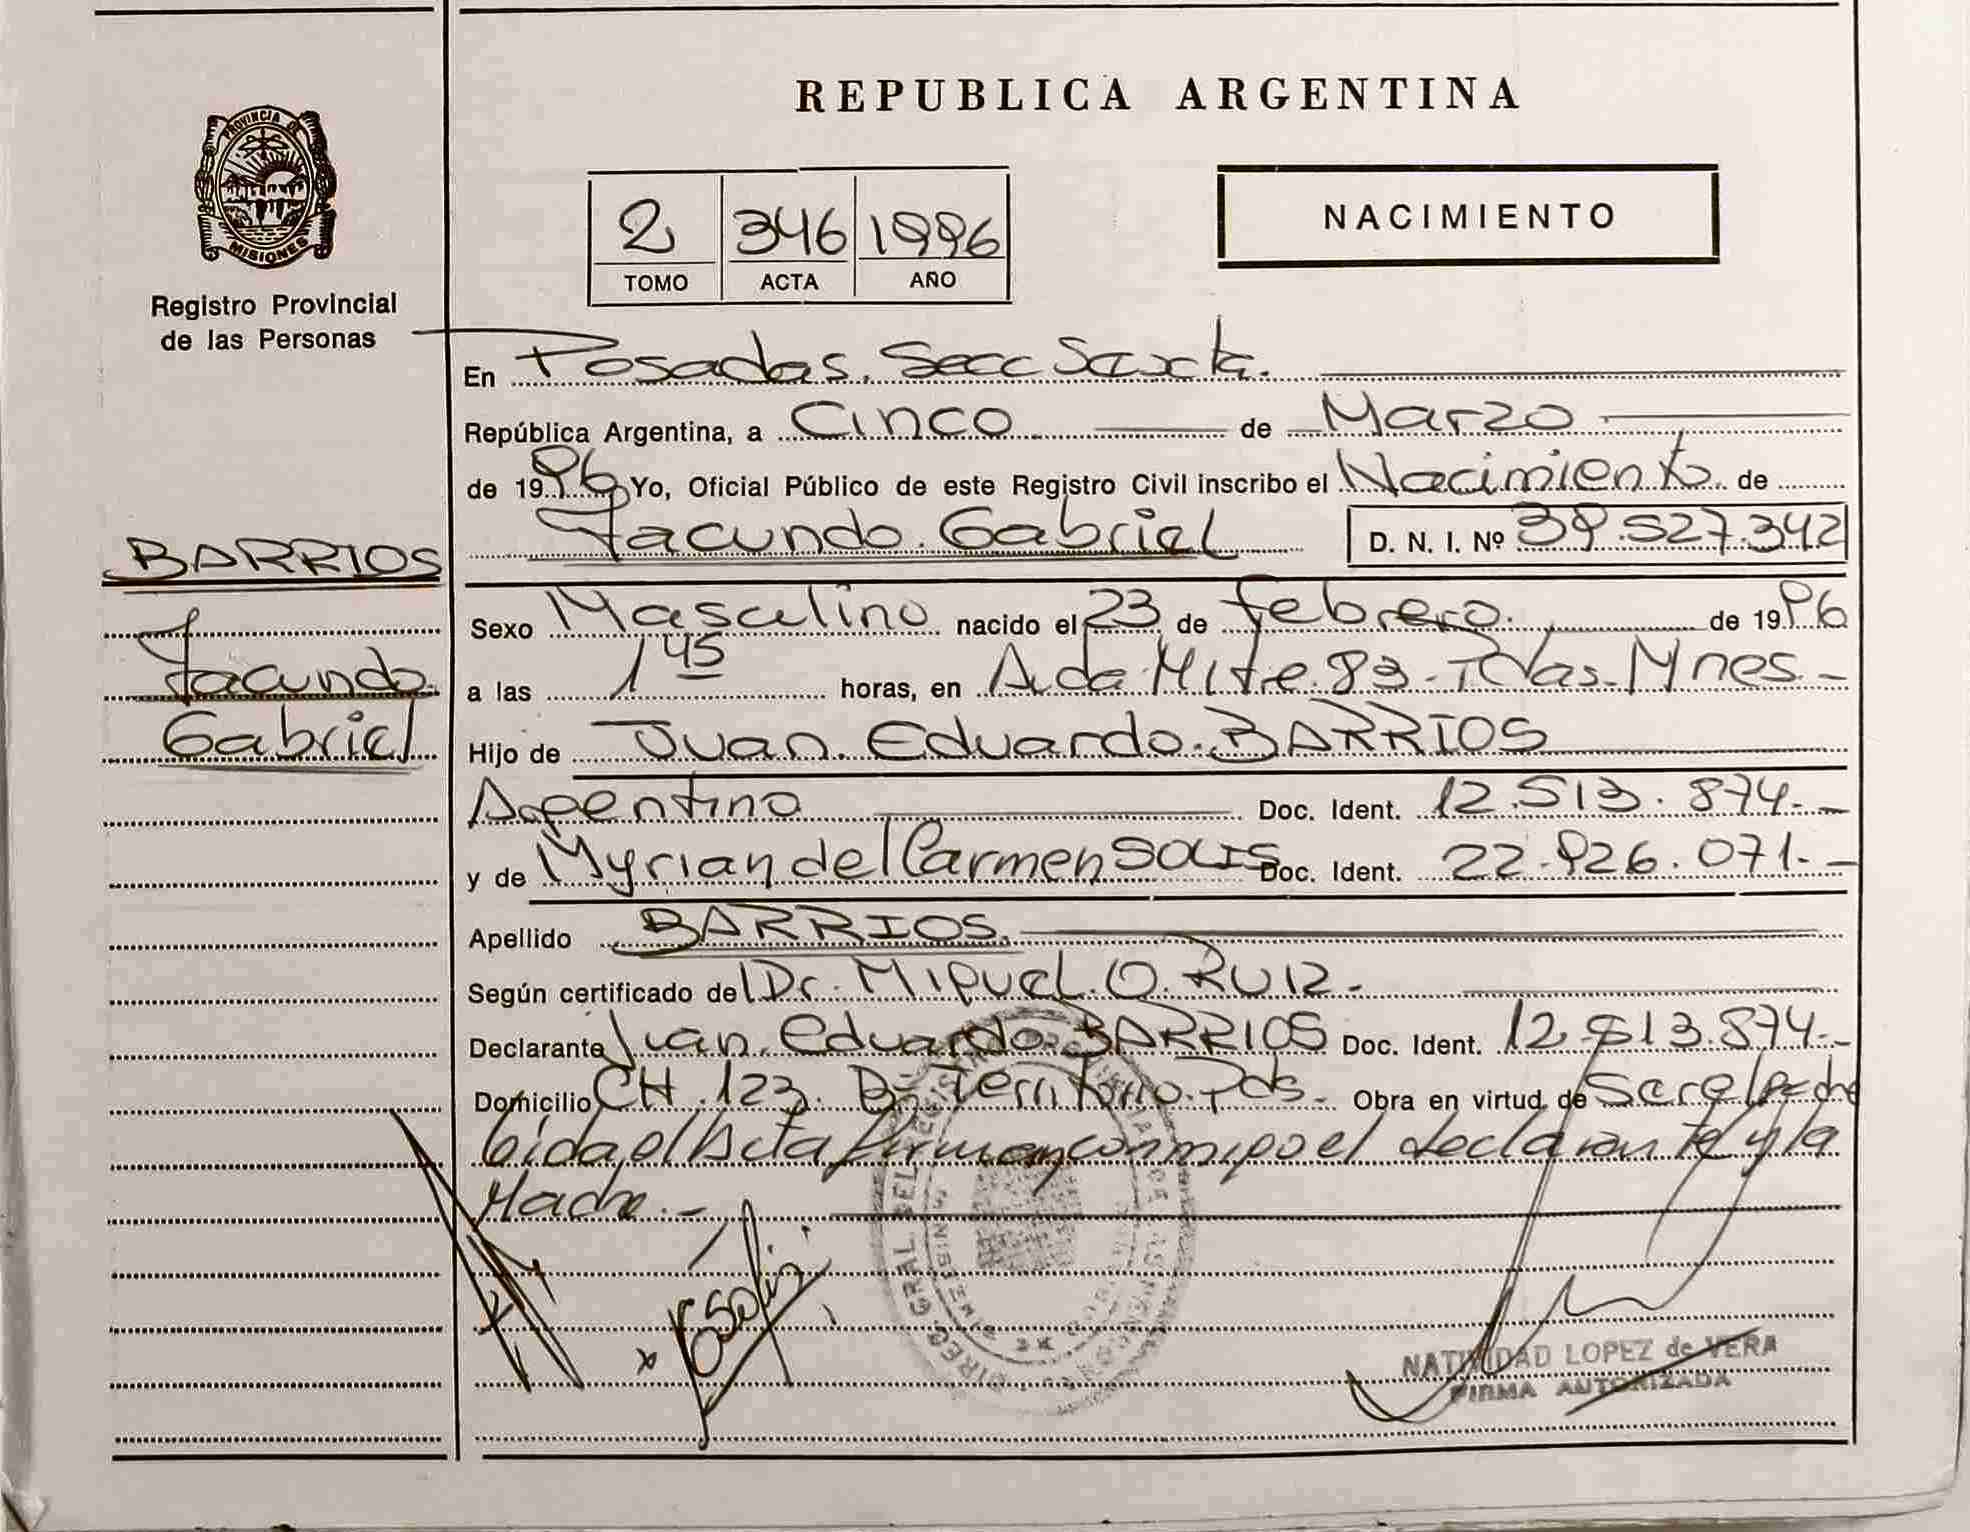 PROVINCIA DE
MISIONES
Registro Provincial
de las Personas
BARRIOS
Facundo
Gabriel
REPUBLICA ARGENTINA
2 346 1996
TOMO ACTA AÑO
NACIMIENTO
En Posadas. Secc Sexta.
República Argentina, a Cinco de Marzo
de 1996 Yo, Oficial Público de este Registro Civil inscribo el Nacimiento de
Facundo Gabriel D. N. I. Nº 39.527.342
Sexo Masculino nacido el 23 de febrero. de 1996
a las 1 45 horas, en Avda Mitre 83. Pdas. Mnes. -
Hijo de Juan Eduardo BARRIOS
Argentino Doc. Ident. 12.513.874.-
y de Myrian del Carmen SOLIS Doc. Ident. 22.926.071.-
Apellido BARRIOS.
Según certificado del Dr. Miguel O. RUIZ.
Declarante Juan Eduardo BARRIOS Doc. Ident. 12.513.874.-
Domicilio CH. 123. Bº Territorio. Pds. - Obra en virtud de Ser el padre
leida el Acta firman conmigo el declarante y la
Madre.-
NATIVIDAD LOPEZ de VERA
FIRMA AUTORIZADA